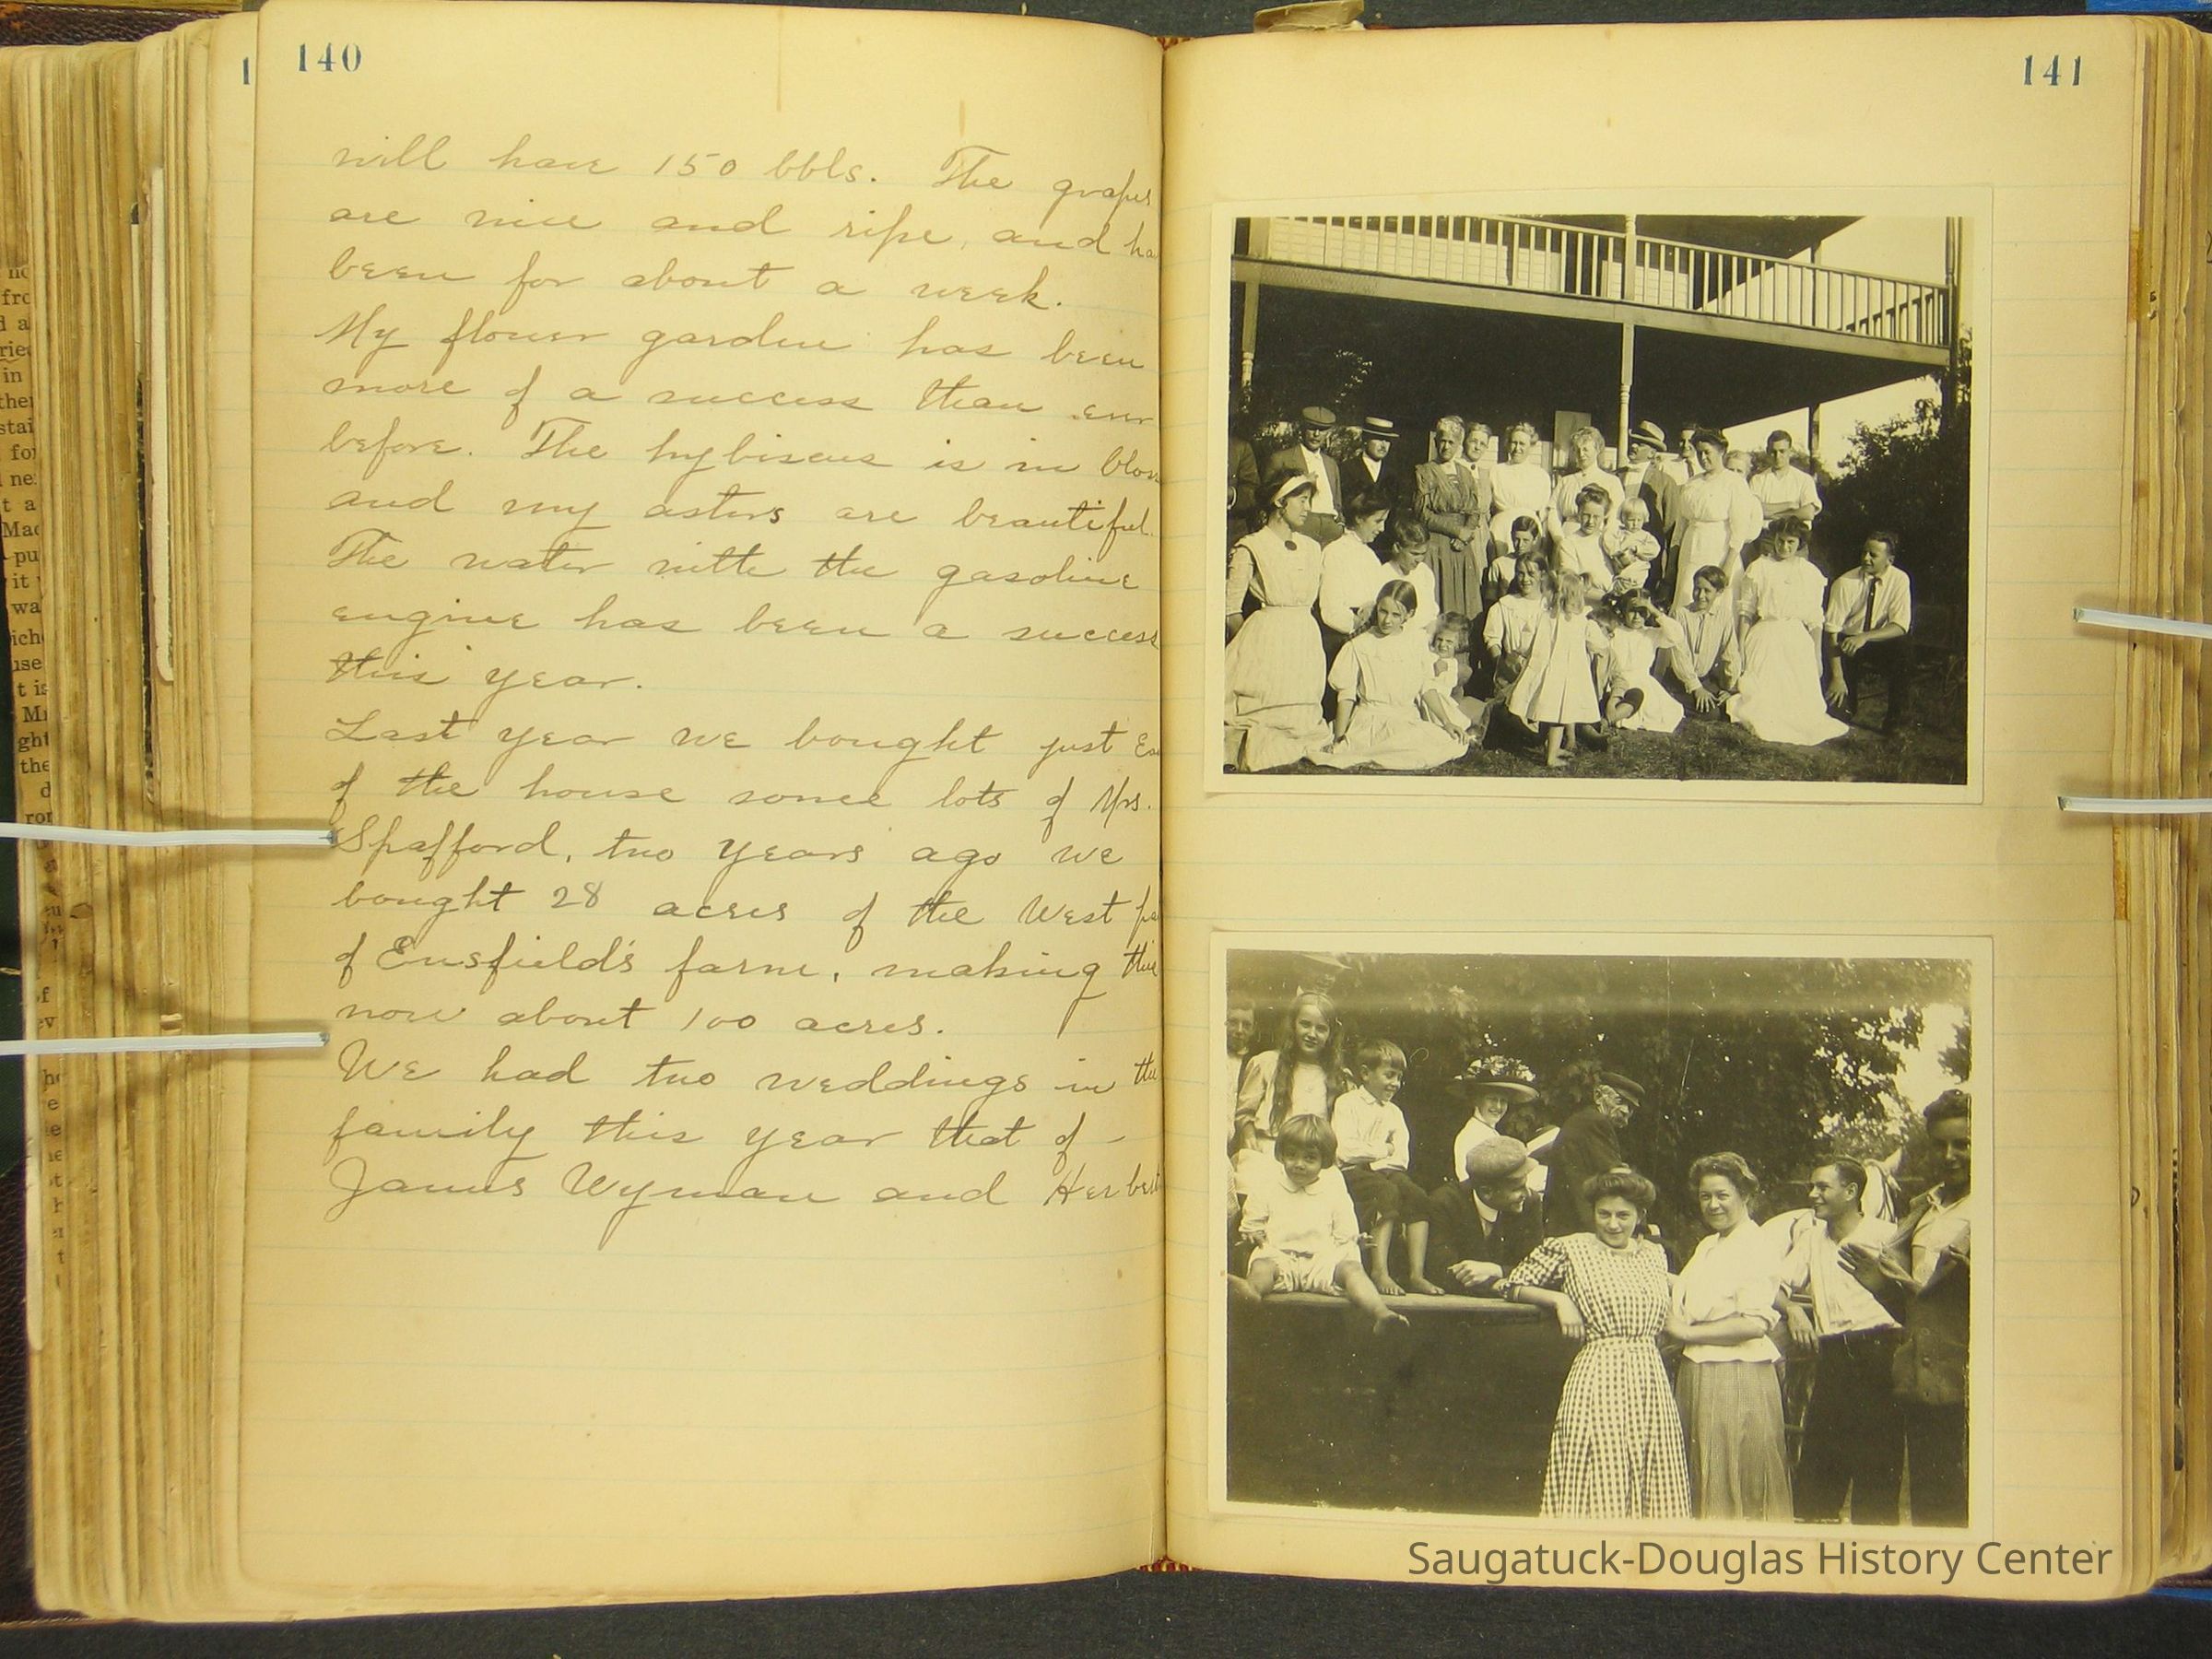 140
will have 150 bbls. The grapes
are nice and ripe, and ha
been for about a week.
My flower garden has been
more of a success than ever
before. The hybiscus is in blos
and my asters are beautiful.
The water with the gasoline
engine has been a success
this year.
Last year we bought just Eas
of the house some lots of Mrs.
Spafford, two years ago we
bought 28 acres of the West pa
of Ensfield's farm, making this
now about 100 acres.
We had two weddings in the
family this year that of -
James Wyman and Herbert
141
Saugatuck-Douglas History Center